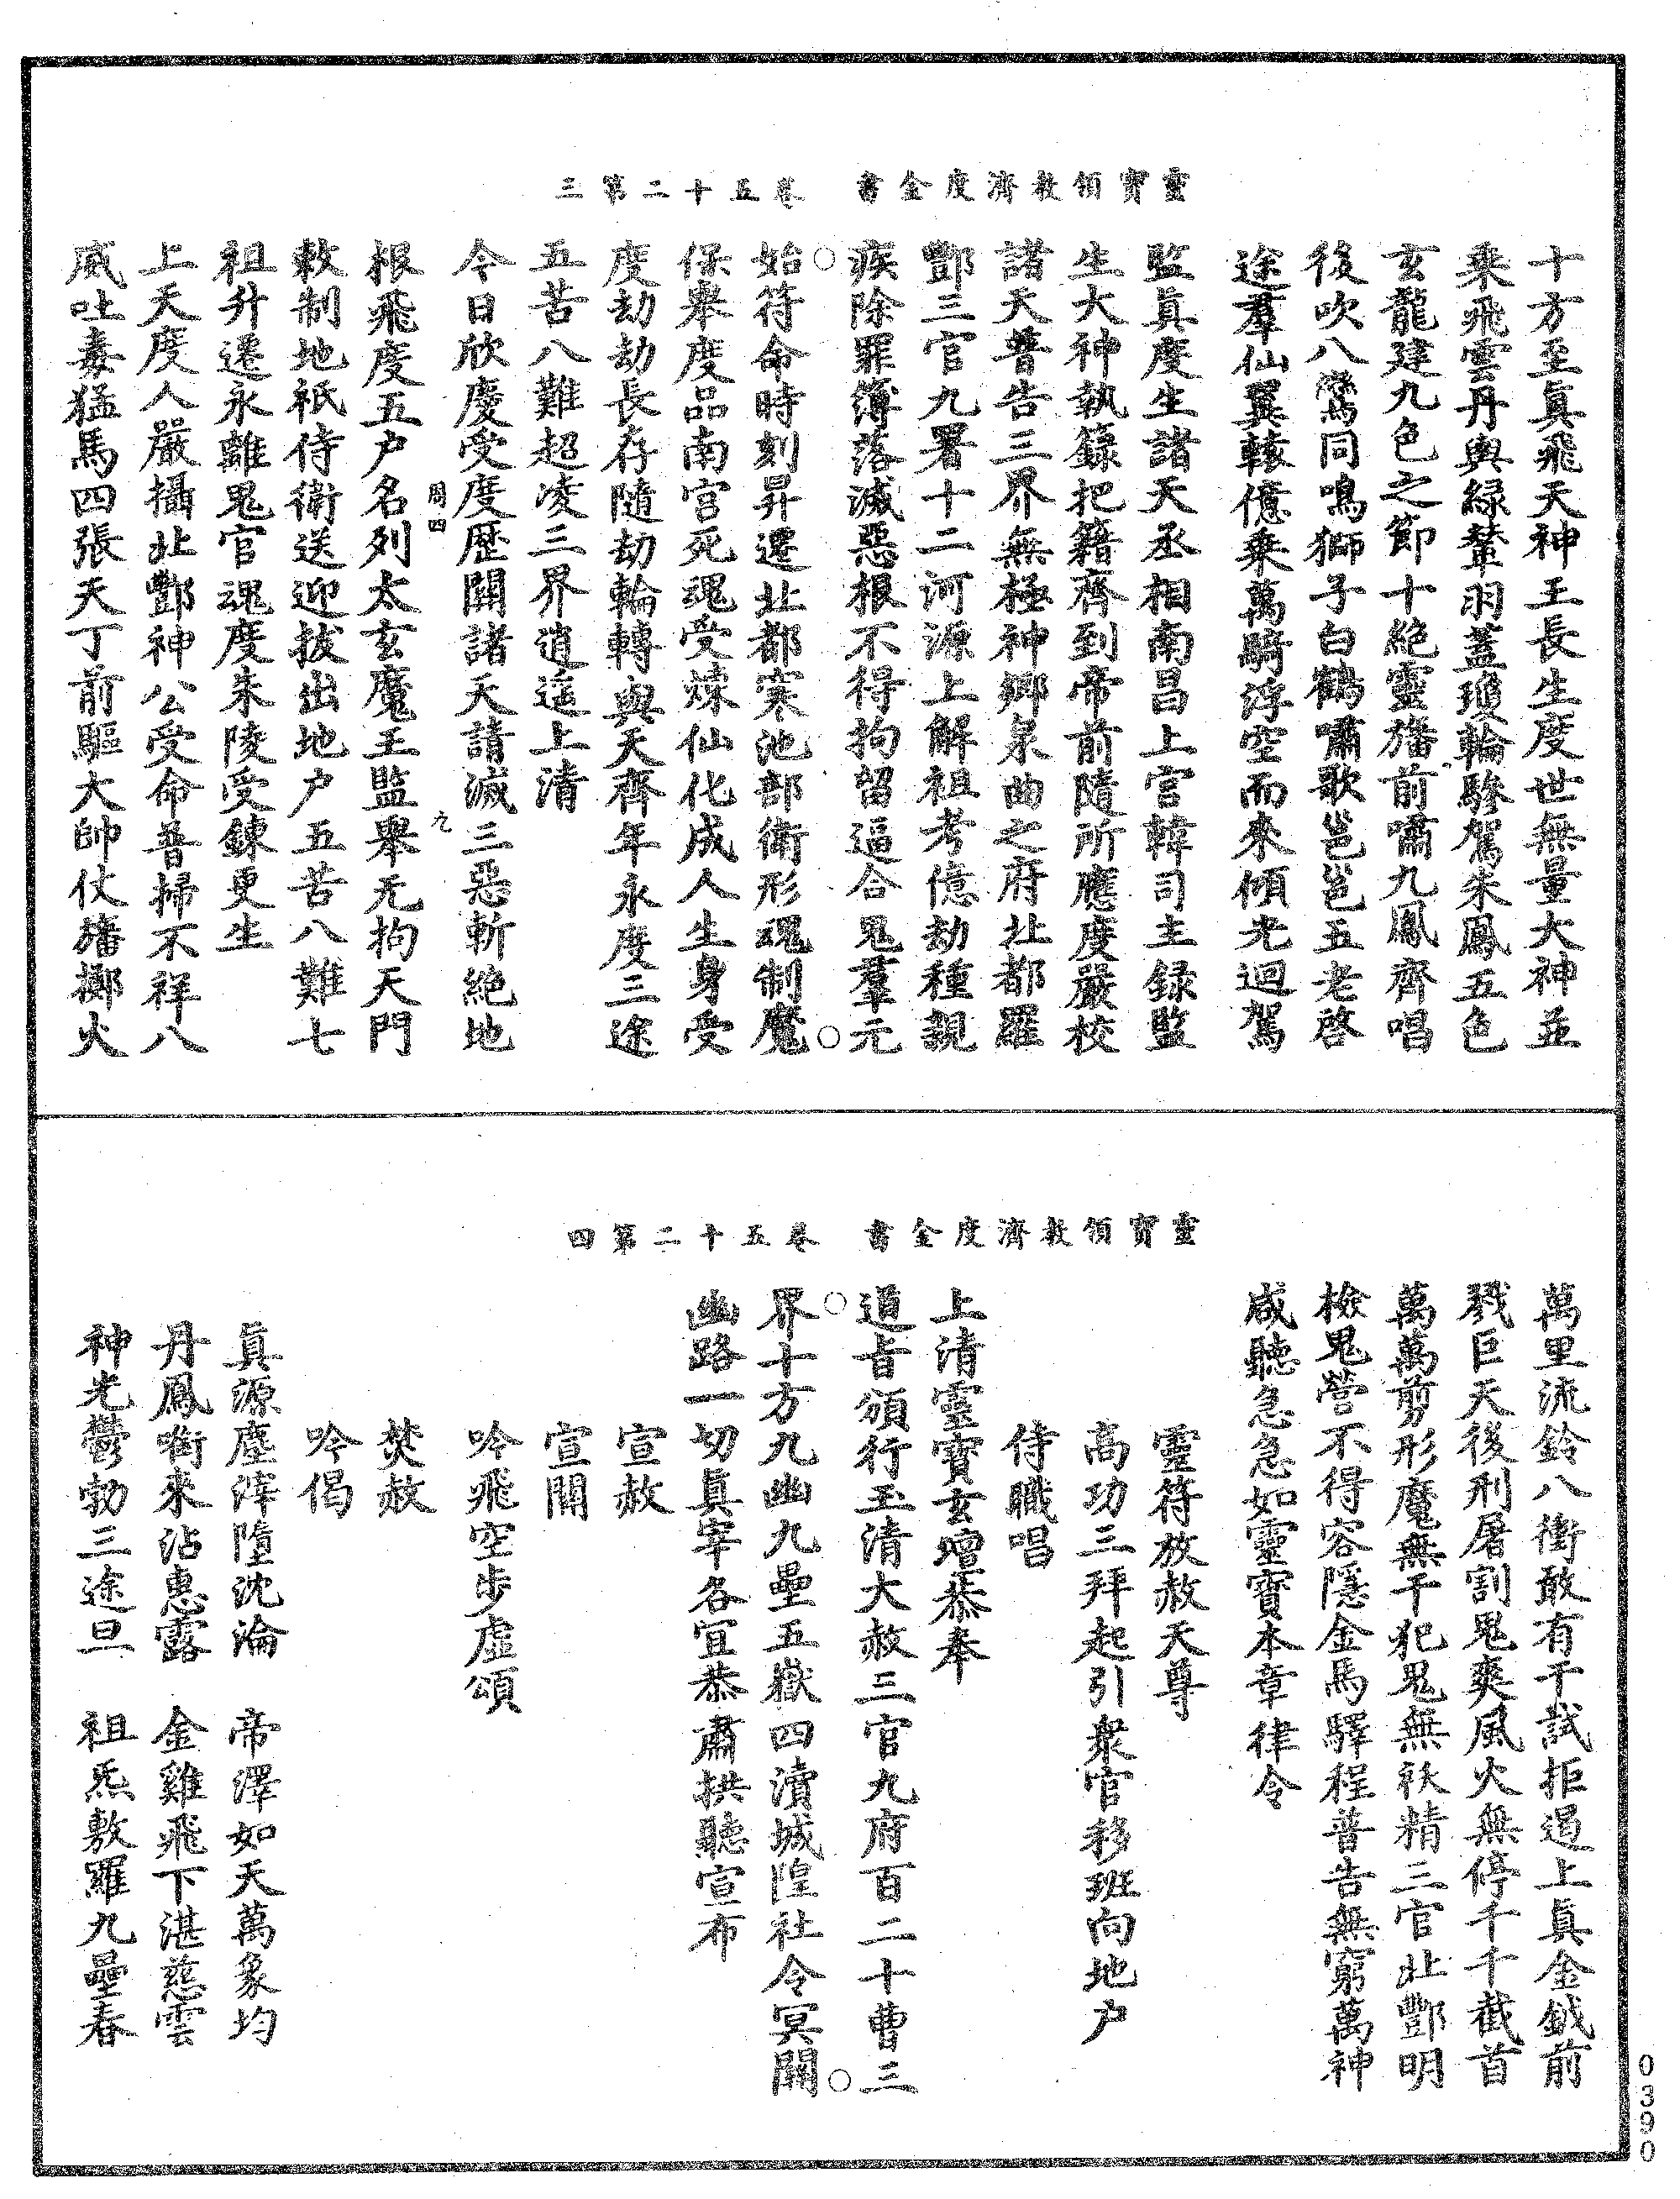 靈寶領敎濟度金書　卷五十二第三
十方至眞飛天神王長生度世無量大神並
乘飛雲丹輿緑輦羽蓋瓊輪驂駕朱鳳五色
玄龍建九色之節十絶靈旛前嘯九鳳齊唱
後吹八鸞同鳴獅子白鶴嘯歌邕邕五老啓
途羣仙翼轅億乘萬騎浮空而來傾光迴駕
監眞度生諸天丞相南昌上宫韓司主録監
生大神執籙把籍齊到帝前隨所應度嚴校
諸天普告三界無極神鄉泉曲之府北都羅
酆三官九署十二河源上解祖考億劫種親
疾除罪簿落滅惡根不得拘留逼合鬼羣元
始符命時刻昇遷北都寒池部衛形魂制魔
保舉度品南宫死魂受煉仙化成人生身受
度劫劫長存隨劫輪轉與天齊年永度三途
五苦八難超凌三界逍遥上清
今日欣慶受度歷關諸天請滅三惡斬絶地
周四　九
根飛度五户名列太玄魔王監舉无拘天門
敕制地祇侍衛送迎拔出地户五苦八難七
祖升遷永離鬼官魂度朱陵受鍊更生
上天度人嚴攝北酆神公受命普掃不祥八
威吐毒猛馬四張天丁前驅大帥仗旛擲火
靈寶領敎濟度金書　卷五十二第四
萬里流鈴八衝敢有干試拒遏上眞金鉞前
戮巨天後刑屠割鬼爽風火無停千千截首
萬萬剪形魔無干犯鬼無袄精三官北酆明
檢鬼營不得容隱金馬驛程普告無窮萬神
咸聽急急如靈寶本章律令
靈符放赦天尊
高功三拜起引衆官移班向地户
侍職唱
上清靈寶玄壇恭奉
道旨頒行玉清大赦三官九府百二十曹三
界十方九幽九壘五嶽四瀆城隍社令冥關
幽路一切眞宰各宜恭肅拱聽宣布
宣赦
宣關
吟飛空步虛頌
焚赦
吟偈
眞源塵滓墮沈淪　帝澤如天萬象均
丹鳳啣來沾惠露　金雞飛下湛慈雲
神光鬱勃三途旦　祖炁敷羅九壘春
0390